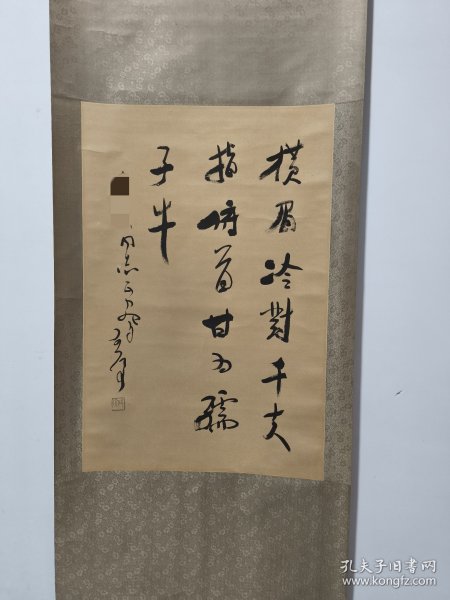 橫眉冷對千夫
指俯首甘为孺
子牛
同志正之
孔夫子旧书网
www.kongfz.com